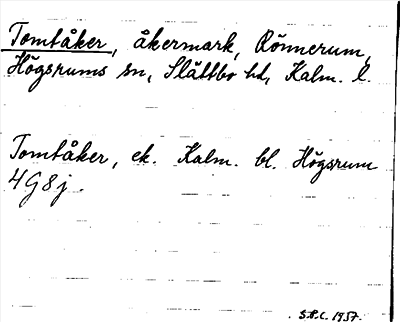 Tomtåker, åkermark, Rönnerum,
Högsrums sn, Slättbo hd, Kalm. l.
Tomtåker, ek. Kalm. bl. Högsrum
4G8j.
S.P.C. 1957.